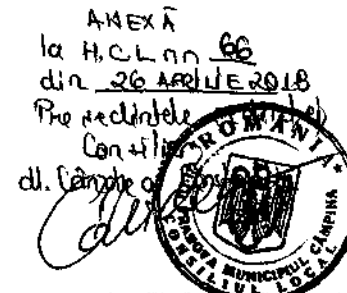 ANEXĂ
la H.C.L nn 66
din 26 APRILIE 2018
Președintele
Consiliu
dl.
ROMÂNIA
PRAHOVA MUNICIPIUL CÂMPINA
CONSILIUL LOCAL